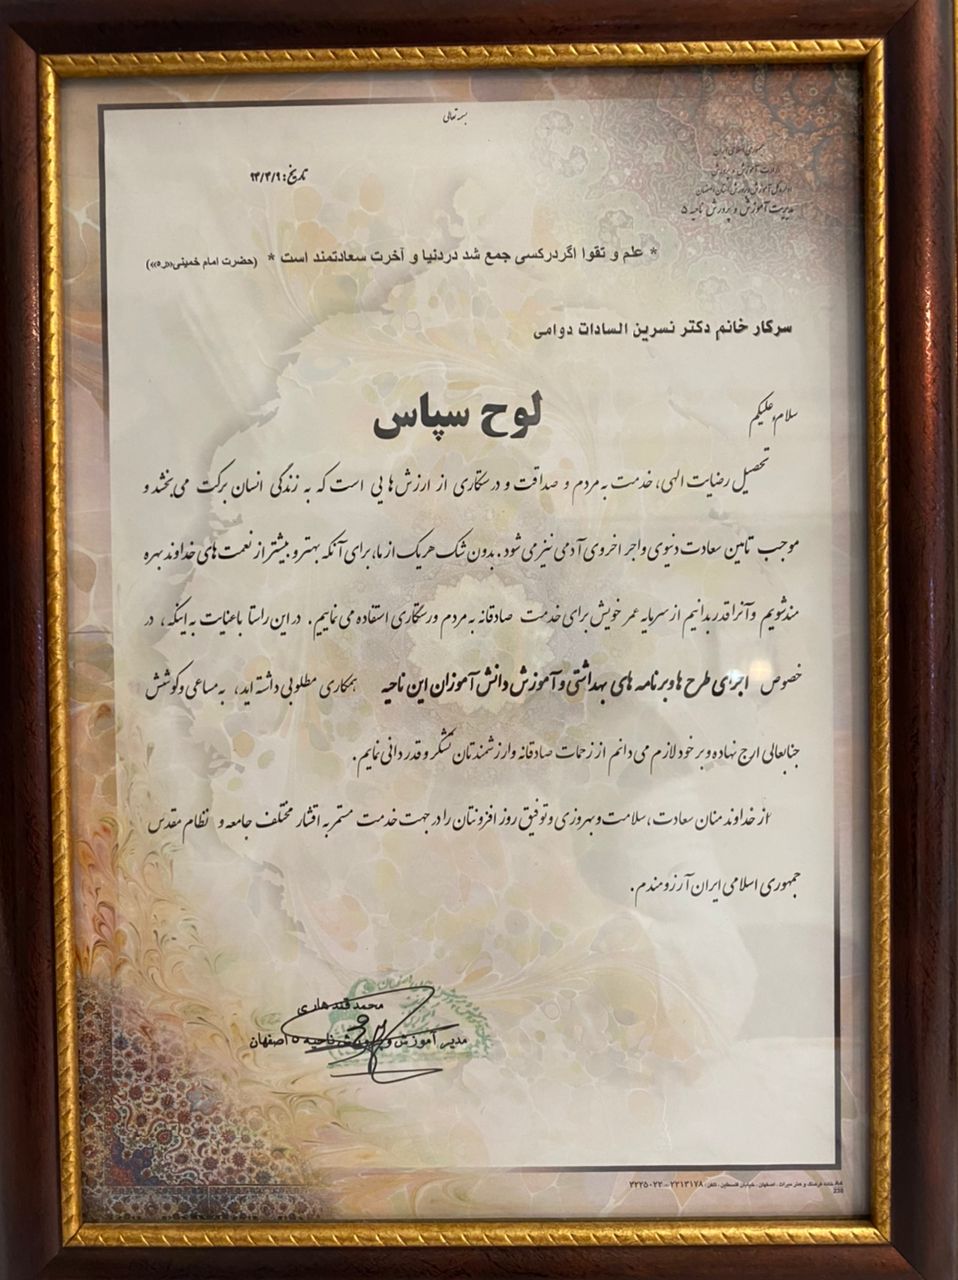 بسمه تعالی
جمهوری اسلامی ایران
وزارت آموزش و پرورش
اداره کل آموزش و پرورش استان اصفهان
مدیریت آموزش و پرورش ناحیه ۵
تاریخ: ۹۴/۴/۹
* علم و تقوا اگردرکسی جمع شد دردنیا و آخرت سعادتمند است * (حضرت امام خمینی«ره»)
سرکار خانم دکتر نسرین السادات دوامی
لوح سپاس
سلام علیکم
تحصیل رضایت الهی، خدمت به مردم و صداقت و درستکاری از ارزش هایی است که به زندگی انسان برکت می بخشد و
موجب تامین سعادت دنیوی و اجر اخروی آدمی نیز می شود. بدون شک هر یک از ما، برای آنکه بهتر و بیشتر از نعمت های خداوند بهره
مند شویم و آنرا قدر بدانیم از سرمایه عمر خویش برای خدمت صادقانه به مردم و رستگاری استفاده می نماییم. در این راستا با عنایت به اینکه، در
خصوص اجرای طرح ها و برنامه های بهداشتی و آموزش دانش آموزان این ناحیه همکاری مطلوبی داشته اید، به مساعی و کوشش
جنابعالی ارج نهاده و بر خود لازم می دانم از زحمات صادقانه و ارزشمندتان تشکر و قدردانی نمایم.
از خداوند منان سعادت، سلامت و بهروزی و توفیق روز افزونتان را در جهت خدمت مستمر به اقشار مختلف جامعه و نظام مقدس
جمهوری اسلامی ایران آرزومندم.
محمد قندهاری
مدیر آموزش و پرورش ناحیه ۵ اصفهان
خانه فرهنگ و هنر میراث - اصفهان - خیابان فلسطین - تلفن: ۲۲۱۳۱۷۸ - ۳۲۲۵۰۲۲
238